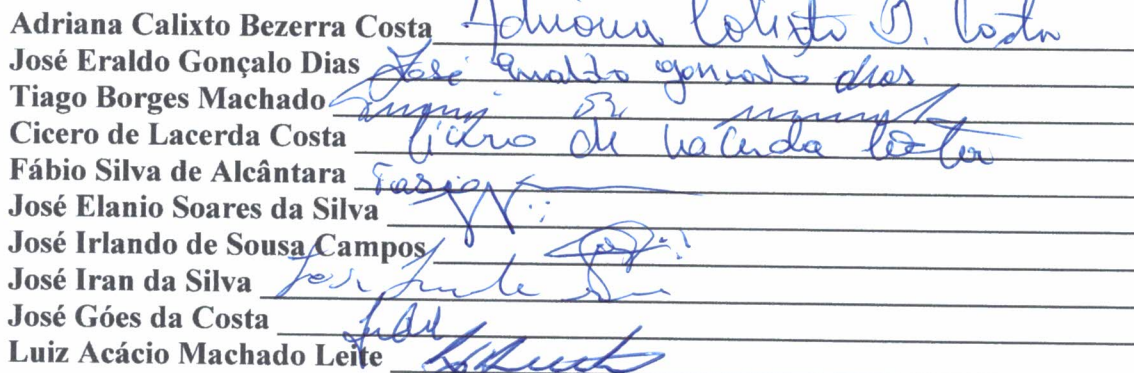 Adriana Calixto Bezerra Costa Adriana Calixto B. Costa
José Eraldo Gonçalo Dias José Eraldo gonçalo dias
Tiago Borges Machado
Cicero de Lacerda Costa Cicero de Lacerda Costa
Fábio Silva de Alcântara
José Elanio Soares da Silva
José Irlando de Sousa Campos
José Iran da Silva José
José Góes da Costa
Luiz Acácio Machado Leite